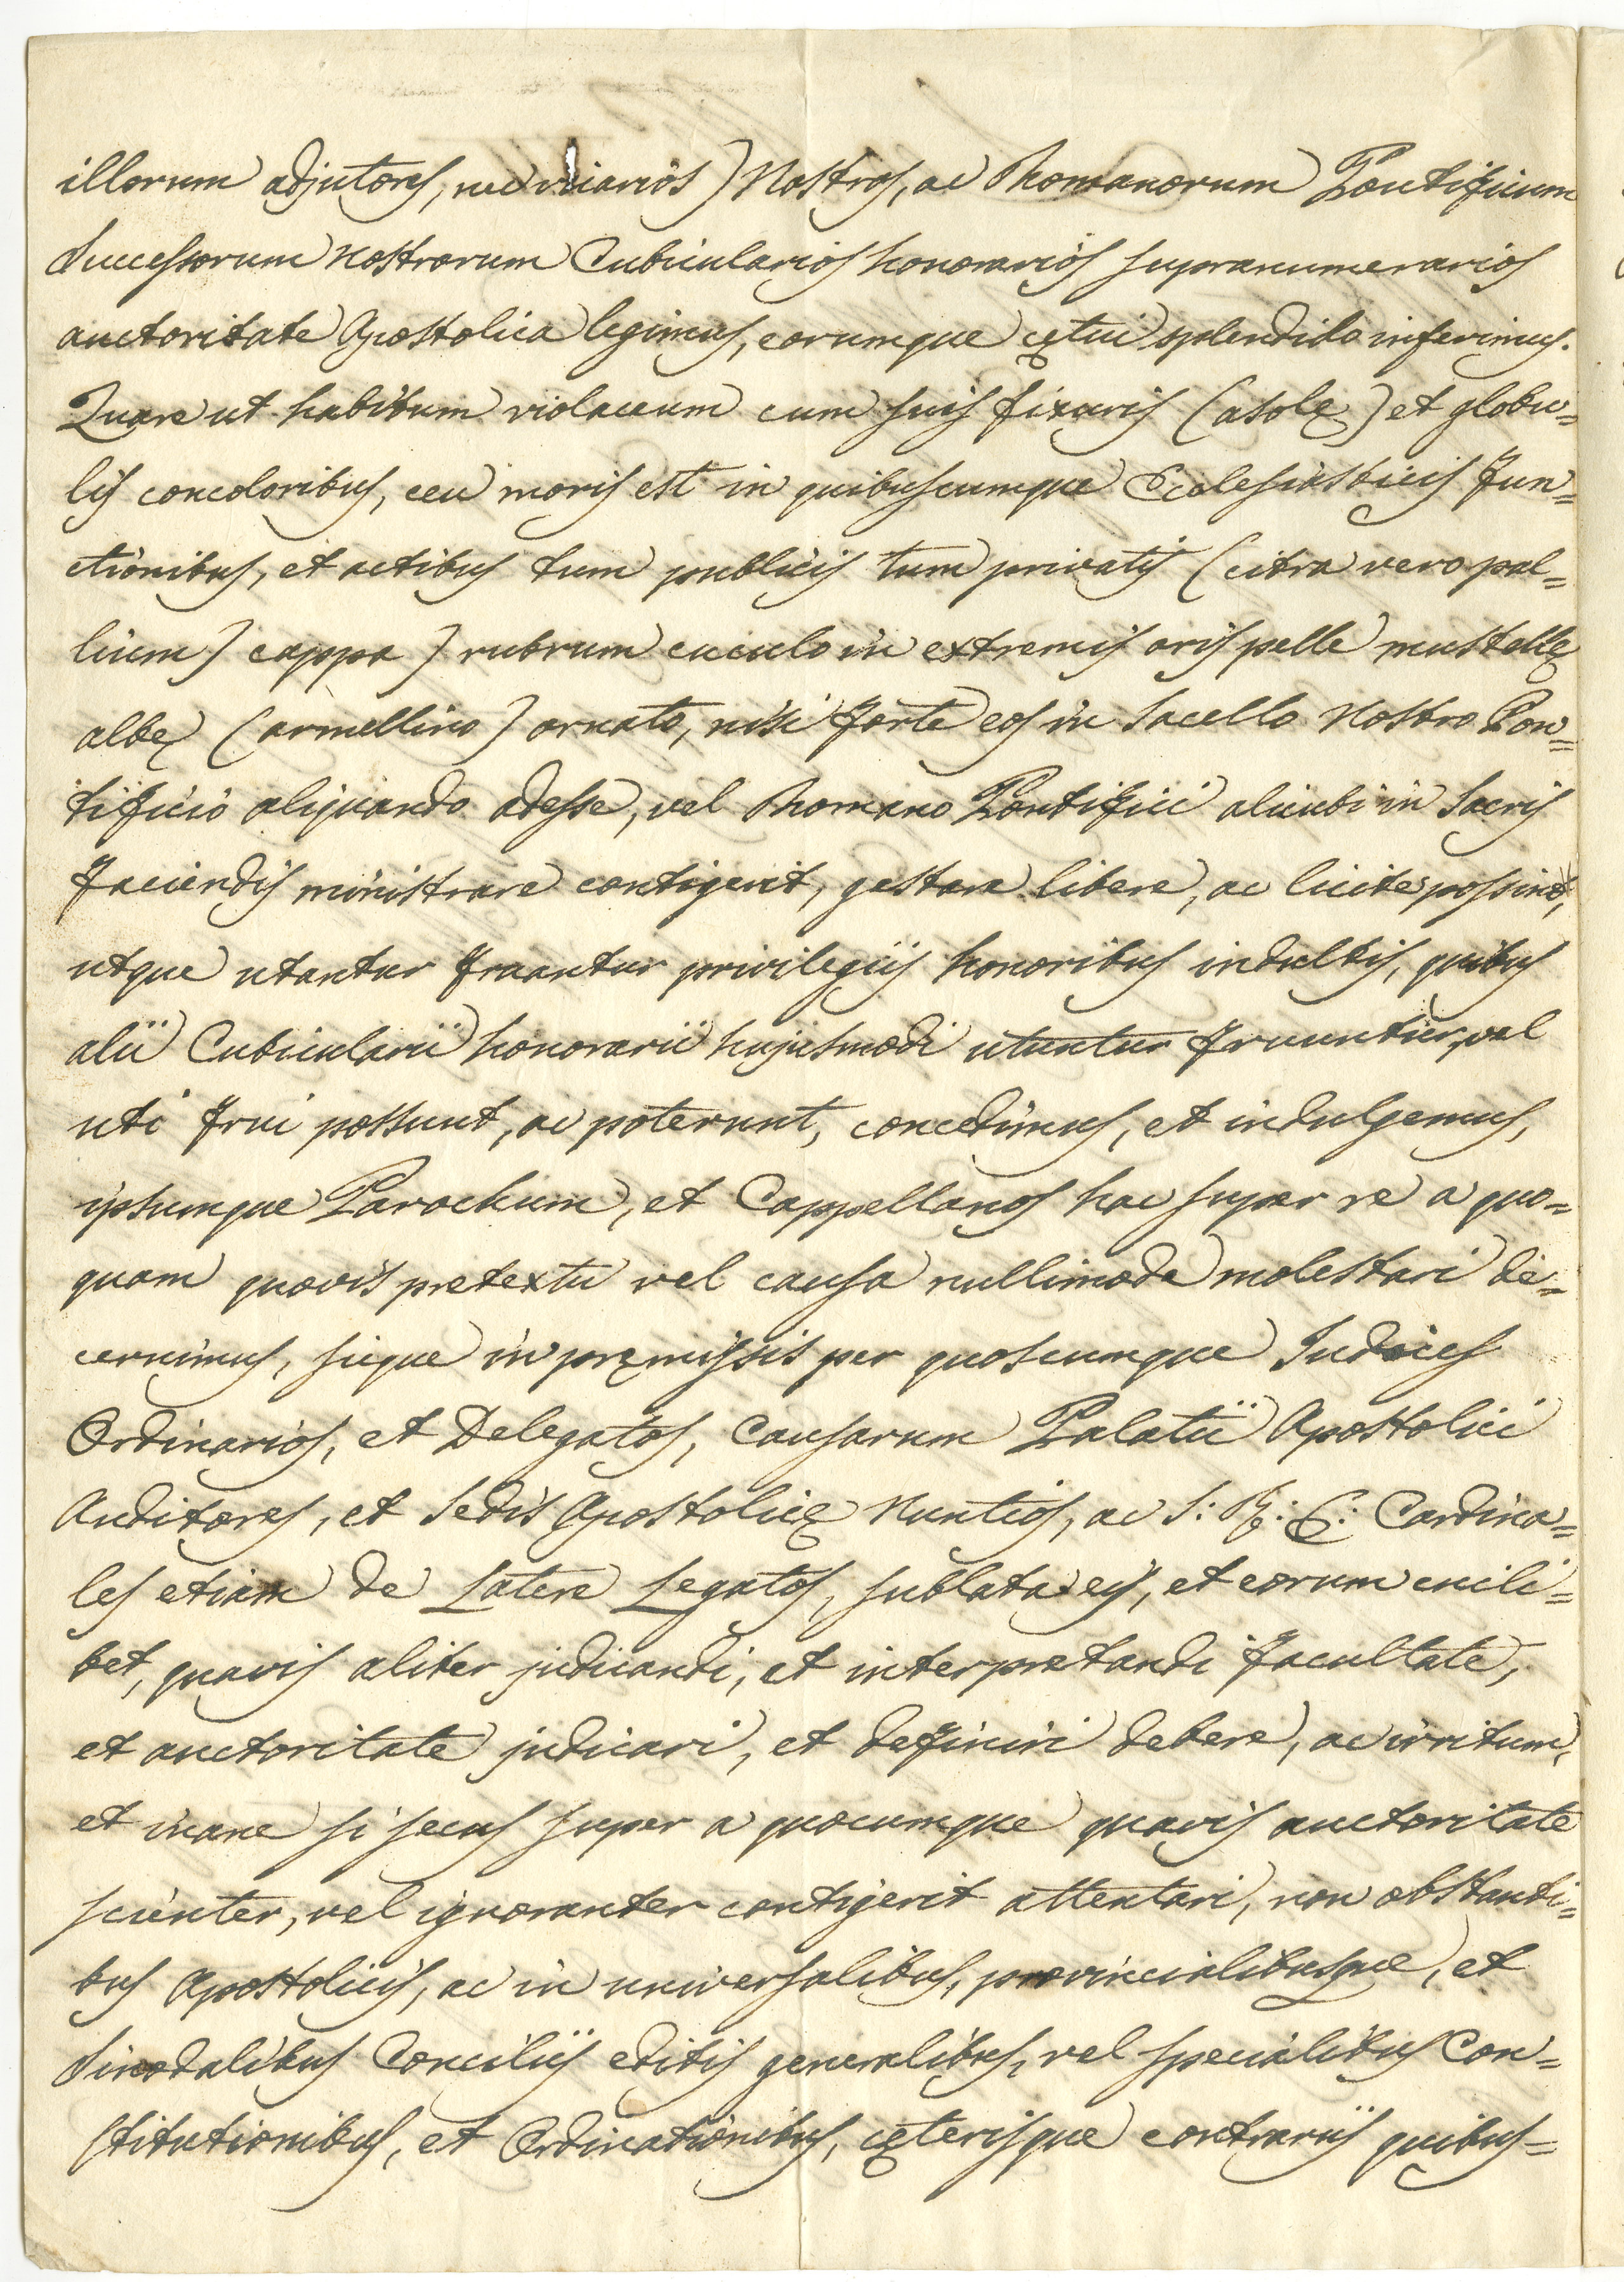 illorum adjutores, nec vicarios) Nostros, ac Romanorum Pontificum
Successorum Nostrorum Cubicularios honorarios supranumerarios
auctoritate Apostolica legimus, eorumque cętui splendido inferimus.
Quare ut habitum violaceum cum suis fixuris (asolę) et globu=
lis concoloribus, ceu moris est in quibuscumque Ecclesiasticis Fun=
ctionibus, et actibus tum publicis tum privatis (citra vero pal=
lium) cappa) rubrum cuculo in extremis oris pelle mustellę
albę (armellino) ornato, nisi forte eos in Sacello Nostro Pon=
tificio aliquando adesse, vel Romano Pontifici alicubi in Sacris
faciendis ministrare contigerit, gestare libere, ac licite possint,
utque utantur fruantur privilegiis honoribus indultis, quibus
alii Cubicularii honorarii hujusmodi utuntur fruuntur, vel
uti frui possunt, ac poterunt, concedimus, et indulgemus,
ipsumque Parochum, et Cappellanos hac super re a quo=
quam quovis pretextu vel causa nullimode molestari de=
cernimus, sique in pręmissis per quoscumque Judices
Ordinarios, et Delegatos, Causarum Palatii Apostolici
Auditores, et Sedis Apostolicę Nuntios, ac S: R: E: Cardina=
les etiam de Latere Legatos, sublata eis, et eorum cuili=
bet, quavis aliter judicandi, et interpretandi facultate,
et auctoritate judicari, et definiri debere, ac irritum,
et inane si secus super a quocumque quavis auctoritate
scienter, vel ignoranter contigerit attentari, non obstanti=
bus Apostolicis, ac in universalibus, provincialibusque, et
Sinodalibus Conciliis editis generalibus, vel specialibus Con=
stitutionibus, et Ordinationibus, cęterisque contrariis quibus=